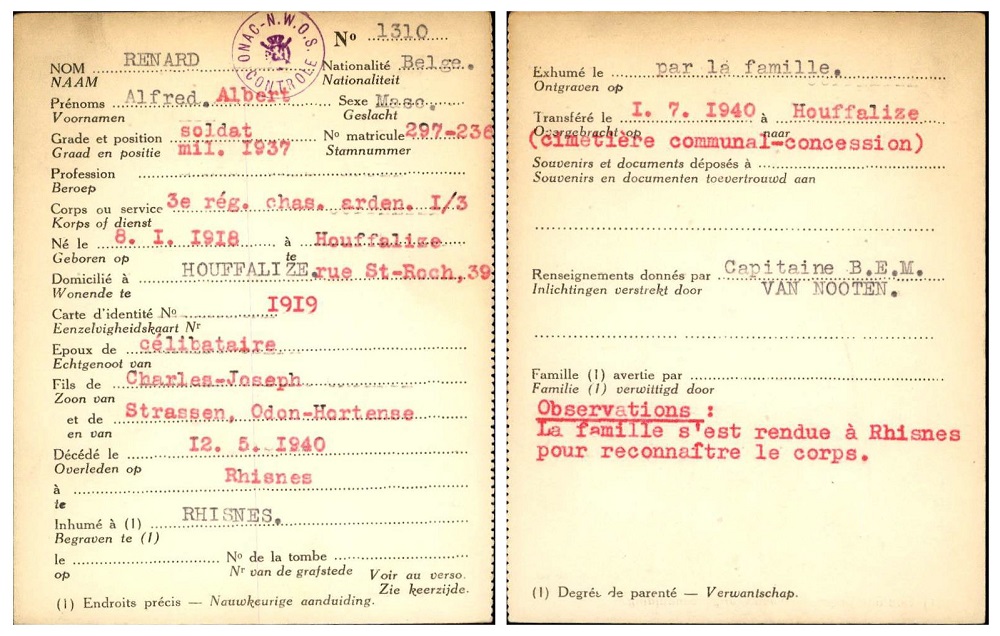 ONAC-N.W.O.S.
CONTROLE
No 1310
NOM RENARD Nationalité Belge.
NAAM Nationaliteit
Prénoms Alfred, Albert Sexe Masc.
Voornamen Geslacht
Grade et position soldat No matricule 297-236
Graad en positie mil. 1937 Stamnummer
Profession
Beroep
Corps ou service 3e rég. chas. arden. I/3
Korps of dienst
Né le 8. I. 1918 à Houffalize
Geboren op te
Domicilié à HOUFFALIZE.rue St-Roch,39
Wonende te
Carte d'identité No 1919
Eenzelvigheidskaart Nr
Epoux de célibataire
Echtgenoot van
Fils de Charles-Joseph
Zoon van
et de Strassen, Odon-Hortense
en van
Décédé le I2. 5. 1940
Overleden op
à Rhisnes
te
Inhumé à (1) RHISNES.
Begraven te (1)
le No de la tombe
op Nr van de grafstede Voir au verso.
Zie keerzijde.
(1) Endroits précis — Nauwkeurige aanduiding.
Exhumé le par la famille.
Ontgraven op
Transféré le I. 7. I940 à Houffalize
Overgebracht op naar
(cimetière communal-concession)
Souvenirs et documents déposés à
Souvenirs en documenten toevertrouwd aan
Renseignements donnés par Capitaine B.E.M.
Inlichtingen verstrekt door VAN NOOTEN.
Famille (1) avertie par
Familie (1) verwittigd door
Observations :
La famille s'est rendue à Rhisnes
pour reconnaître le corps.
(1) Degré de parenté — Verwantschap.